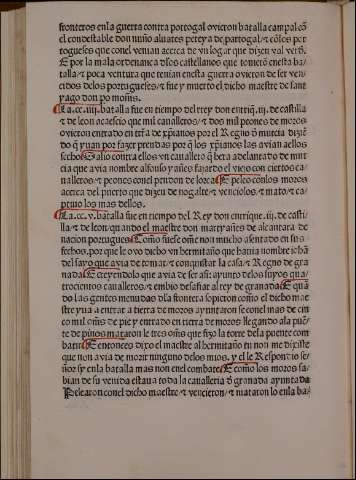 fronteros enla guerra contra portogal ouieron batalla campal cõ
el condestable don nuño aluares pereyra de portogal ⁊ cõlos por
togueses que conel venian acerca de vn logar que dizen val verd.
E por la mala ordenança dlos castellanos que touierõ enesta ba
talla ⁊ poca ventura que tenian enesta guerra ouieron de ser ven
cidos delos portogueses ⁊ fue y muerto el dicho maestre de sant
yago don po moñis.
La .cc.iiij. batalla fue en tiempo del rey don enriq̃. iij. de castilla
⁊ de leon acaescio que mil caualleros ⁊ dos mil peones de moros
ouieron entrado en tr̃a de xp̃ianos por el Regno đ murcia dizien
do q̃ yuan por fazer prendas por q̃ los xp̃ianos las avian aellos
fecho Salio contra ellos vn cauallero q̃ era adelantado de mur
cia que avia nombre alfonso yañes fajardo el viejo con ciertos ca
ualleros ⁊ peones conel pendon de lorca E peleo conlos moros
acerca del puerto que dizen de nogalte ⁊ venciolos ⁊ mato ⁊ ca
ptiuo los mas dellos.
La .cc.v. batalla fue en tiempo del Rey don enrrique .iij. de casti
lla ⁊ de leon quando el maestre don martyañes de alcantara de
nacion portugues Como fuese ome non mucho asentado en sus
fechos. por que le ovo dicho vn hermitaño que hauia nombre ichã
del sayo que avia de tomar ⁊ conquistar la casa ⁊ Regno de gra
nada E creyendolo que avia de ser asi: ayunto delos suyos qua
trocientos caualleros. ⁊ embio desafiar al rey de granada E quã
do las gentes menudas dla frontera sopieron como el dicho mae
stre yua a entrar a tierra de moros ayuntaron se conel mas de cin
co mil oms̃ de pie y entrado en tierra de moros llegando ala puẽ
te de pinos mataron le tres oms̃ que fijo la torre dela puente com
batir E entonces dixo el maestre al hermitaño tu non me dixiste
que non avia de morir ninguno delos mios. y el le Respondio se
ñor sy enla batalla mas non enel combate E como los moros sa
bian de su venida estaua toda la caualleria đ granada ayuntada
Pelearon conel dicho maestre ⁊ vencieron ⁊ mataron lo enla ba